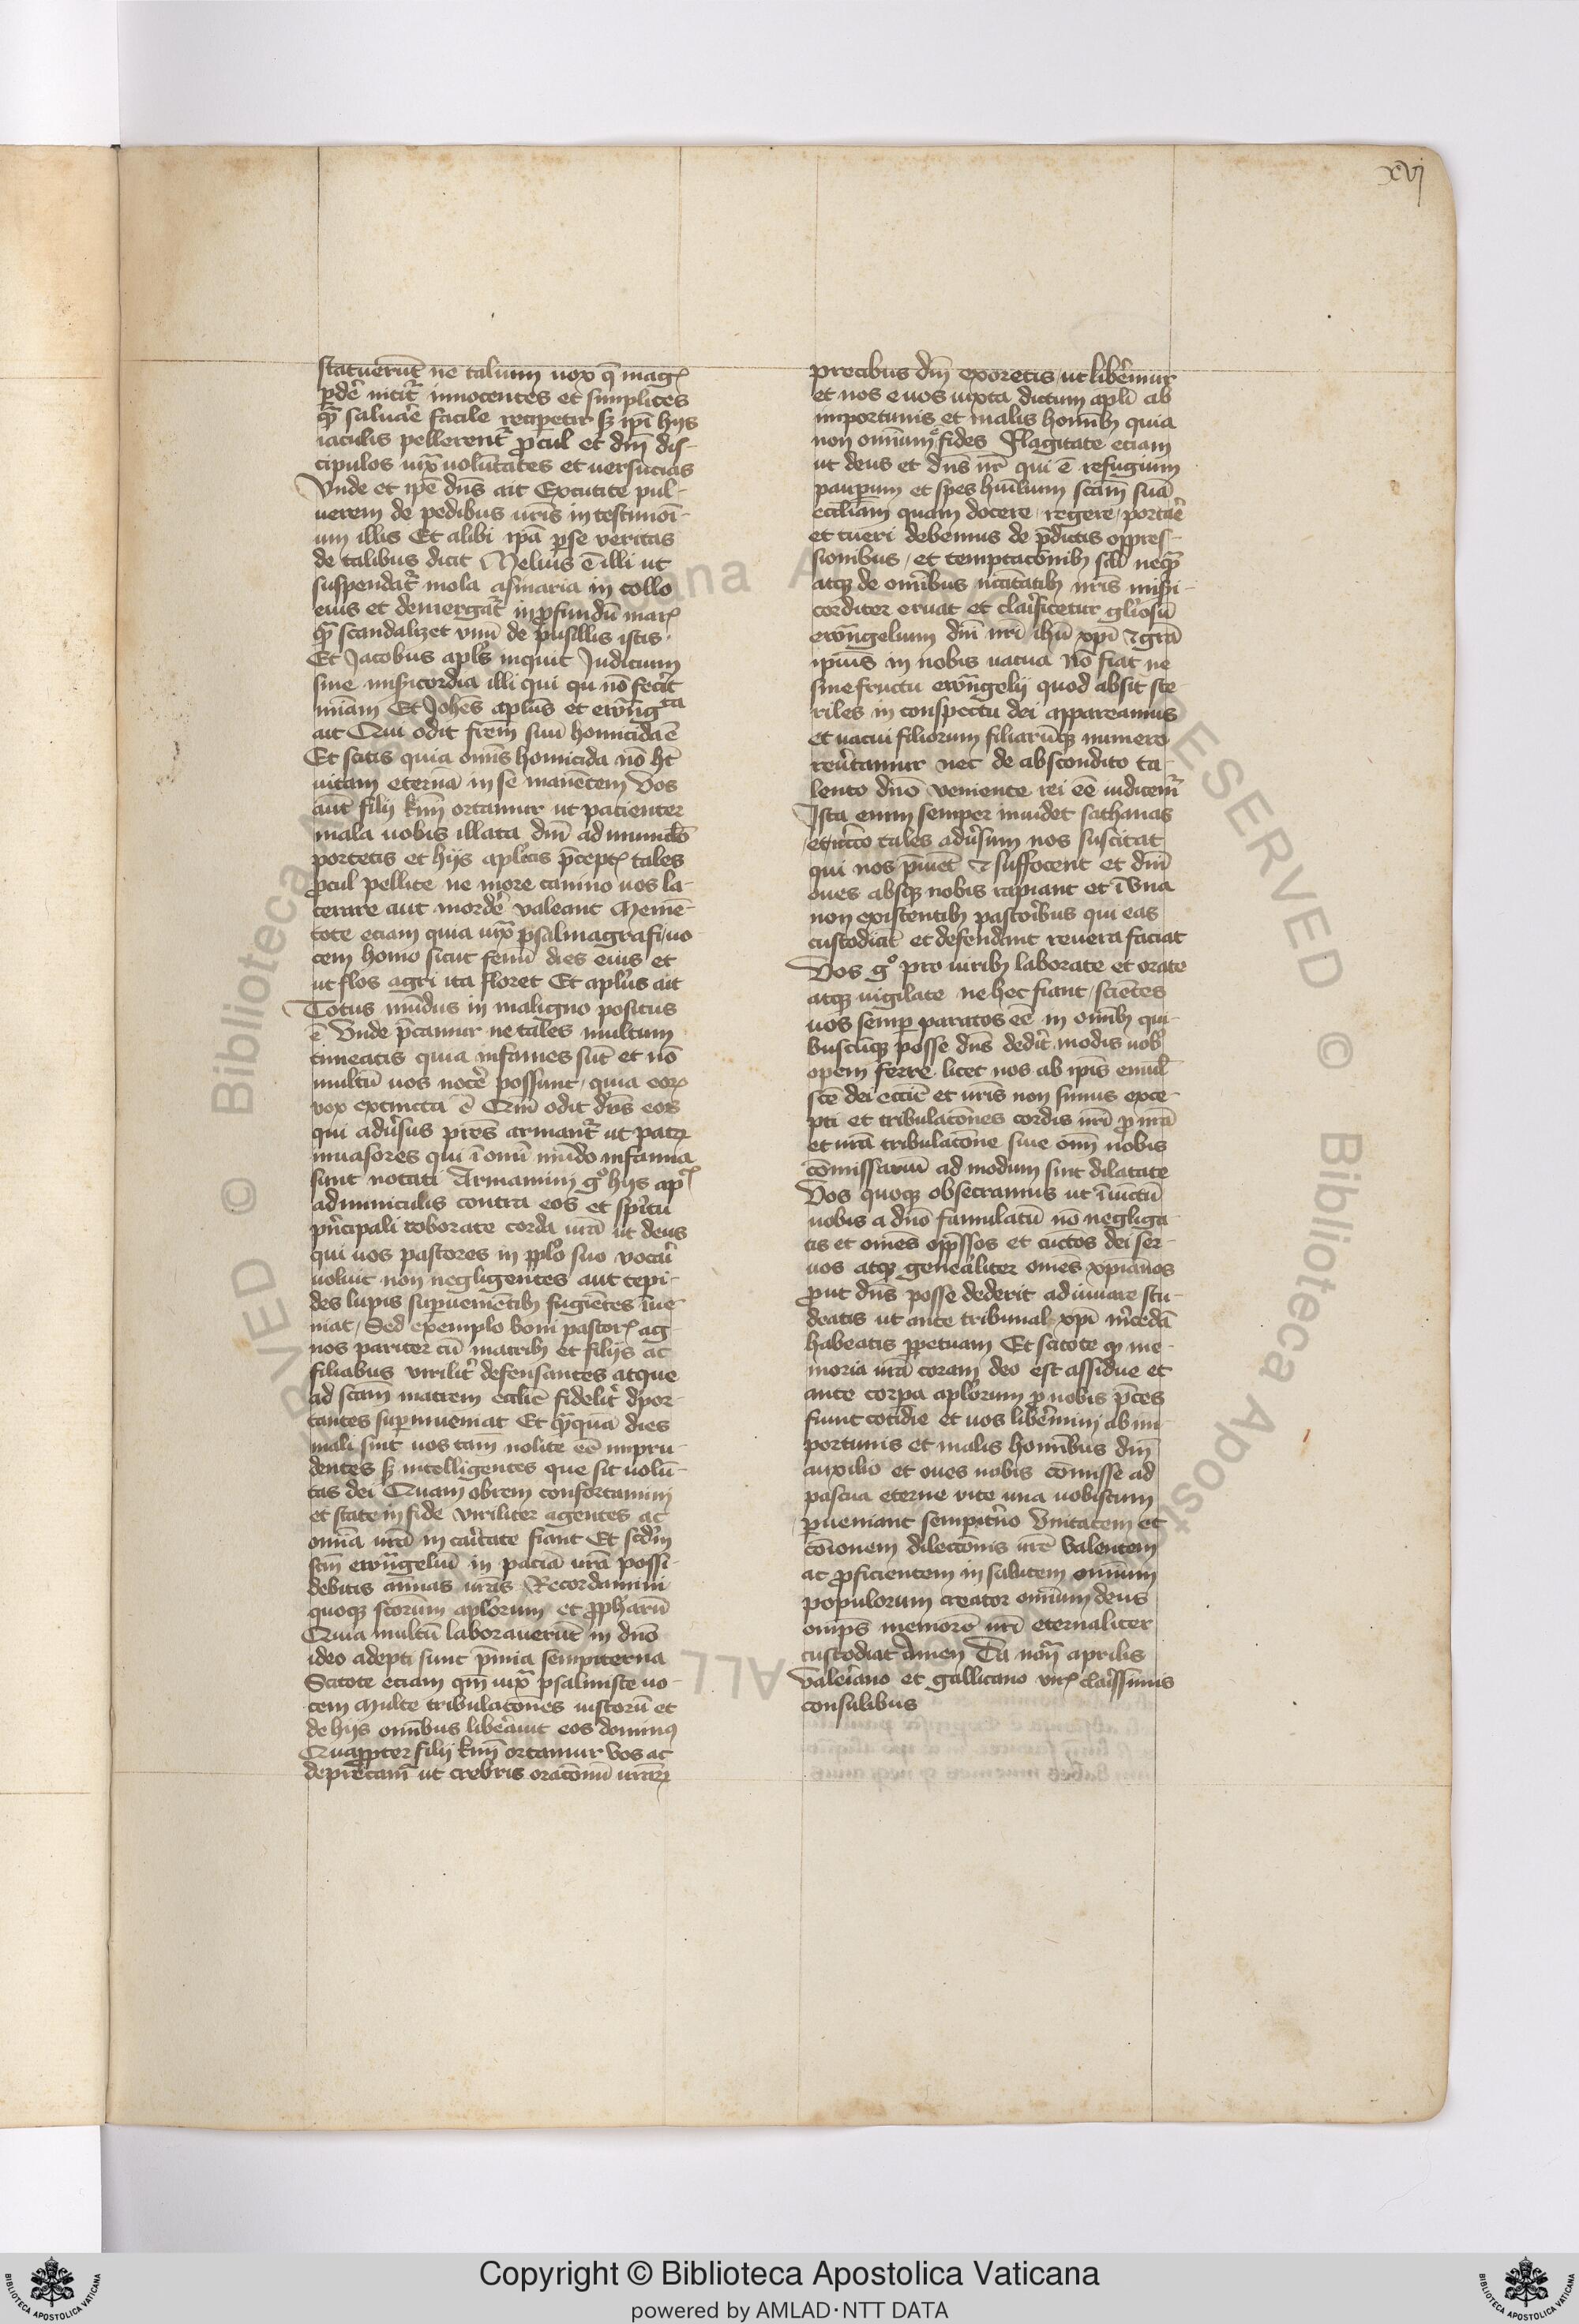 xvj
statuerūt ne talium uox q̄ magꝭ
ꝑdē nitit᷑ innocentes et simplices
qᷓ saluāe facile reciperetur sꝫ ipī hijs
iaculis pellerent᷑ ꝓcul et dm̄ dis-
cipulos iuxᷓ uolūtates et uersucias
Vnde et ipē dn̄s ait Excutite pul-
uerem de pedibus ur̄is in testimoī-
um illis Et alibi ipā ꝑ se veritas
de talibus dicit Melius ē illi ut
suspendat᷑ mola asinaria in collo
eius et demergat᷑ in ꝓfundū marꝭ
qᷓ scandalizet vnū de pusillis istis
Et Jacobus apl̄s inquit Judicium
sine misēicordia illi qui qu nō fecīt
miām Et Joh̄es apl̄us et ewāgᵗᵃ
ait Qui odit fr̄em suū homicida ē
Et scitis quia om̄is homicida nō ht̄
uitam eternā in se manētem Vos
aūt filij kmī ortamur ut patienter
mala uobis illata dm̄ adminiclō
portetis et hijs apl̄icis p̄ceptꝭ tales
ꝓcul pellite ne more canino uos la-
cerare aut mordē valeant Memē-
tote eciam quia iuxᷓ psalmagrafi uo-
cem homo sicut fenū dies eius et
ut flos agri ita floret Et apl̄us ait
Totus mūdus in maligno positus
ē Vnde p̄camur ne tales multum
timeatis quia infames sūt et nō
multū uos nocē possunt quia eoꝝ
vox extincta ē Qm̄ odit dn̄s eos
qui adūsus pr̄es armant᷑ ut patꝝ
inuasores qui ī omī mūdo infamia
sunt notati Armamini gᵒ hijs apꝭ
adminiculis contra eos et sp̄ritu
pn̄cipali roborate corda ur̄a ut deus
qui uos pastores in pplō suo vocāi
uoluit non negligentes aut tepi-
des lupis suꝑuenīetibꝫ fugiētes īue-
niat Sed exemplo boni pastorꝭ ag-
nos pariter cū matribꝫ et filijs ac
filiabus virilit᷑ defensantes atque
ad sc̄am matrem eccl̄ie fidelit᷑ dꝑor-
tantes suꝑinueniat Et qᷓquā dies
mali sint uos tam̄ nolite eē impru-
dentes sꝫ intelligentes que sit uolū-
tas dei Quam obrem confortamini
et state in fide viriliter agentes ac
omīa ur̄a in cāitate fiant Et scd̄m
scm̄ ewāgeliū in paciā ur̄a possi-
debitis aīmas ur̄as Recordamini
quoqꝫ sc̄orum apl̄orum et ꝓphārū
Quia multū laborauerūt in dnō
ideo adepti sunt p̄mia sempiterna
Scitote eciam qm̄ iuxᷓ psalmiste uo-
cem Multe tribulacōnes iustorū et
de hijs om̄ibus libēauit eos dominꝰ
Quapꝓter filij kmī ortamur vos ac
deprecam᷑ ut crebris oracōnū ur̄aꝝ
precibus dm̄ exoretis ut libēmur
et nos e uos iuxta dictum apl̄i ab
importunis et malis hom̄ibꝫ quia
non omnium fides Flagitate eciam
ut deus et dn̄s nr̄ qui ē refugium
pauꝑum et spes humilium sc̄am suā
eccl̄iam quam docere regere portaē
et tueri debemus de p̄dictis oppres-
sionibus et temptacōnibꝫ sc̄li neqᷓ
atqꝫ de om̄ibus nc̄citatibꝫ nr̄is misēi-
corditer eruat et claīficetur glīosū
ewāngelium dnī nr̄i ih̄u xp̄i ⁊ grā
ipius in nobis uacua nō fiat ne
sine fructu ewāngelij quod absit ste-
riles in conspectu dei appareamus
et uacui filiorum filiarūqꝫ numero
reūtamur nec de abscondito ta-
lento dnō veniente rei eē iudicem᷑
Ista enim semper inuidet sathanas
et iccirco tales adūsum nos suscitat
qui nos p̄miēt ⁊ suffocent et dm̄
oues absqꝫ nobis rapiant et ī vna
non existentibꝫ pastoribus qui eas
custodiāt et defendant reuera faciat
Vos gᵒ pro uiribꝫ laborate et orate
atqꝫ uigilate ne hec fiant sciētes
uos semꝑ paratos eē in om̄ibꝫ qui-
buscūqꝫ posse dn̄s dedīt modis uob̄
opem ferre licet nos ab ipīs emul̄
sc̄e dei eccl̄ie et ur̄is non simus exce-
pti et tribulacōnes cordis nr̄i ꝓ ur̄a
et nr̄a tribulacōne siue omī nobis
cōmissarū ad modum sint dilatate
Vos quoqꝫ obsecramus ut īiūctū
uobis a dnō famulatū nō negliga-
tis et om̄es opp̄ssos et cūctos dei ser-
uos atqꝫ genēaliter om̄es xp̄ianos
ꝓut dn̄s posse dederit adiuuare stu-
deatis ut ante tribunal xp̄i mēcedā
habeatis ꝑpetuam Et scitote qꝫ me-
moria ur̄a coram deo est assidue et
ante corꝑa apl̄orum ꝓ uobis p̄ces
fiunt cotidie et uos libēmini ab im-
portunis et malis hom̄ibus dm̄
auxilio et oues uobis cōmisse ad
pascua eterne vite una uobiscum
ꝑueniant sempitno Vnitatem et
cōionem dilectōnis ur̄e valentem
ac ꝓficientem in salutem omnium
populorum creator omnium deus
om̄ps memorō nr̄i eternaliter
custodiat Amen Da nonᷓ aprilis
Valeīano et gallicano virꝭ claīssimis
consulibus
Copyright © Biblioteca Apostolica Vaticana
powered by AMLAD·NTT DATA